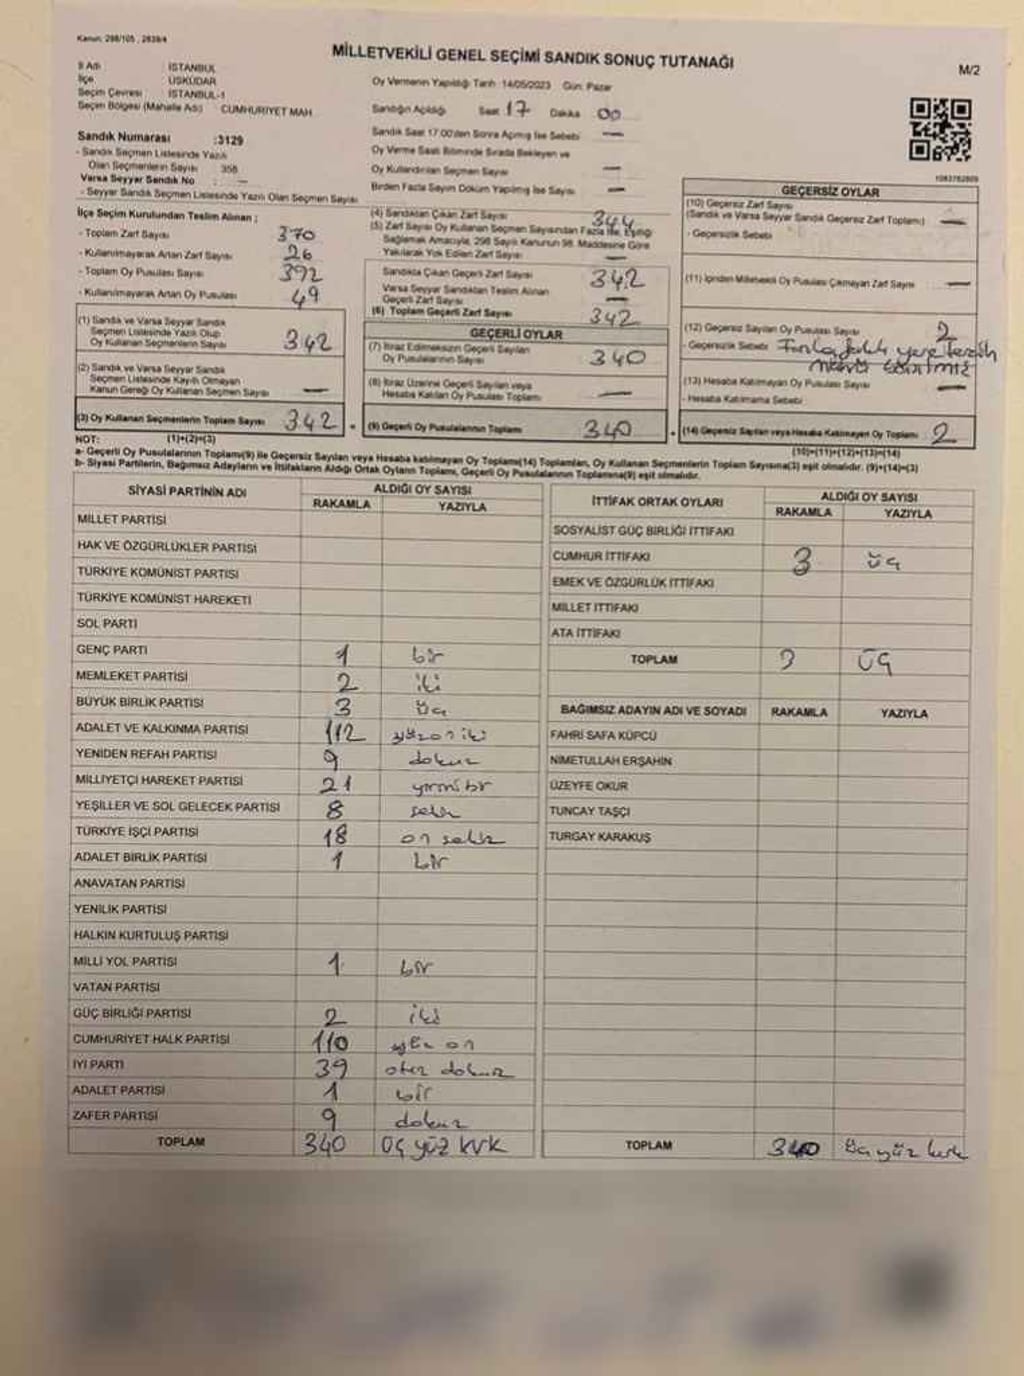 Kanun: 298/105, 2839/4
MİLLETVEKİLİ GENEL SEÇİMİ SANDIK SONUÇ TUTANAĞI
M/2
İl Adı : İSTANBUL
İlçe : ÜSKÜDAR
Seçim Çevresi : İSTANBUL-1
Seçim Bölgesi (Mahalle Adı) : CUMHURİYET MAH.
Sandık Numarası :3129
- Sandık Seçmen Listesinde Yazılı
Olan Seçmenlerin Sayısı : 358
Varsa Seyyar Sandık No : —
- Seyyar Sandık Seçmen Listesinde Yazılı Olan Seçmen Sayısı
Oy Vermenin Yapıldığı Tarih :14/05/2023 Gün: Pazar
Sandığın Açıldığı Saat 17 Dakika 00
Sandık Saat 17.00'den Sonra Açılmış İse Sebebi —
Oy Verme Saati Bitiminde Sırada Bekleyen ve
Oy Kullandırılan Seçmen Sayısı —
Birden Fazla Sayım Döküm Yapılmış İse Sayısı —
1083762809
İlçe Seçim Kurulundan Teslim Alınan ;
- Toplam Zarf Sayısı 370
- Kullanılmayarak Artan Zarf Sayısı 26
- Toplam Oy Pusulası Sayısı 392
- Kullanılmayarak Artan Oy Pusulası 49
(1) Sandık ve Varsa Seyyar Sandık
Seçmen Listesinde Yazılı Olup
Oy Kullanan Seçmenlerin Sayısı 342
(2) Sandık ve Varsa Seyyar Sandık
Seçmen Listesinde Kayıtlı Olmayan
Kanun Gereği Oy Kullanan Seçmen Sayısı —
(3) Oy Kullanan Seçmenlerin Toplam Sayısı 342
(1)+(2)=(3)
(4) Sandıktan Çıkan Zarf Sayısı 344
(5) Zarf Sayısı Oy Kullanan Seçmen Sayısından Fazla İse, Eşitliği
Sağlamak Amacıyla, 298 Sayılı Kanunun 98. Maddesine Göre
Yakılarak Yok Edilen Zarf Sayısı —
Sandıkta Çıkan Geçerli Zarf Sayısı 342
Varsa Seyyar Sandıktan Teslim Alınan
Geçerli Zarf Sayısı —
(6) Toplam Geçerli Zarf Sayısı 342
GEÇERLİ OYLAR
(7) İtiraz Edilmeksizin Geçerli Sayılan
Oy Pusulalarının Sayısı 340
(8) İtiraz Üzerine Geçerli Sayılan veya
Hesaba Katılan Oy Pusulası Toplamı —
(9) Geçerli Oy Pusulalarının Toplamı 340
GEÇERSİZ OYLAR
(10) Geçersiz Zarf Sayısı
(Sandık ve Varsa Seyyar Sandık Geçersiz Zarf Toplamı) —
- Geçersizlik Sebebi
(11) İçinden Milletvekili Oy Pusulası Çıkmayan Zarf Sayısı —
(12) Geçersiz Sayılan Oy Pusulası Sayısı 2
- Geçersizlik Sebebi yere
(13) Hesaba Katılmayan Oy Pusulası Sayısı —
- Hesaba Katılmama Sebebi
(14) Geçersiz Sayılan veya Hesaba Katılmayan Oy Toplamı 2
(10)+(11)+(12)+(13)=(14)
NOT:
a- Geçerli Oy Pusulasının Toplamı(9) ile Geçersiz Sayılan veya Hesaba katılmayan Oy Toplamı(14) Toplamları, Oy Kullanan Seçmenlerin Toplam Sayısına(3) eşit olmalıdır. (9)+(14)=(3)
b- Siyasi Partilerin, Bağımsız Adayların ve İttifakların Aldığı Ortak Oyların Toplamı, Geçerli Oy Pusulalarının Toplamına(9) eşit olmalıdır.
SİYASİ PARTİNİN ADI ALDIĞI OY SAYISI
RAKAMLA YAZIYLA
MİLLET PARTİSİ
HAK VE ÖZGÜRLÜKLER PARTİSİ
TÜRKİYE KOMÜNİST PARTİSİ
TÜRKİYE KOMÜNİST HAREKETİ
SOL PARTİ
GENÇ PARTİ 1 bir
MEMLEKET PARTİSİ 2 iki
BÜYÜK BİRLİK PARTİSİ 3 üç
ADALET VE KALKINMA PARTİSİ 112 yüzon iki
YENİDEN REFAH PARTİSİ 9 dokuz
MİLLİYETÇİ HAREKET PARTİSİ 21 yirmi bir
YEŞİLLER VE SOL GELECEK PARTİSİ 8 sekiz
TÜRKİYE İŞÇİ PARTİSİ 18 on sekiz
ADALET BİRLİK PARTİSİ 1 bir
ANAVATAN PARTİSİ
YENİLİK PARTİSİ
HALKIN KURTULUŞ PARTİSİ
MİLLİ YOL PARTİSİ 1 bir
VATAN PARTİSİ
GÜÇ BİRLİĞİ PARTİSİ 2 iki
CUMHURİYET HALK PARTİSİ 110 yüz on
İYİ PARTİ 39 otuz dokuz
ADALET PARTİSİ 1 bir
ZAFER PARTİSİ 9 dokuz
TOPLAM 340 Üç yüz kırk
İTTİFAK ORTAK OYLARI ALDIĞI OY SAYISI
RAKAMLA YAZIYLA
SOSYALİST GÜÇ BİRLİĞİ İTTİFAKI
CUMHUR İTTİFAKI 3 üç
EMEK VE ÖZGÜRLÜK İTTİFAKI
MİLLET İTTİFAKI
ATA İTTİFAKI
TOPLAM 3 ÜÇ
BAĞIMSIZ ADAYIN ADI VE SOYADI RAKAMLA YAZIYLA
FAHRİ SAFA KÜPCÜ
NİMETULLAH ERŞAHİN
ÜZEYFE OKUR
TUNCAY TAŞÇI
TURGAY KARAKUŞ
TOPLAM 340 üç yüz kırk